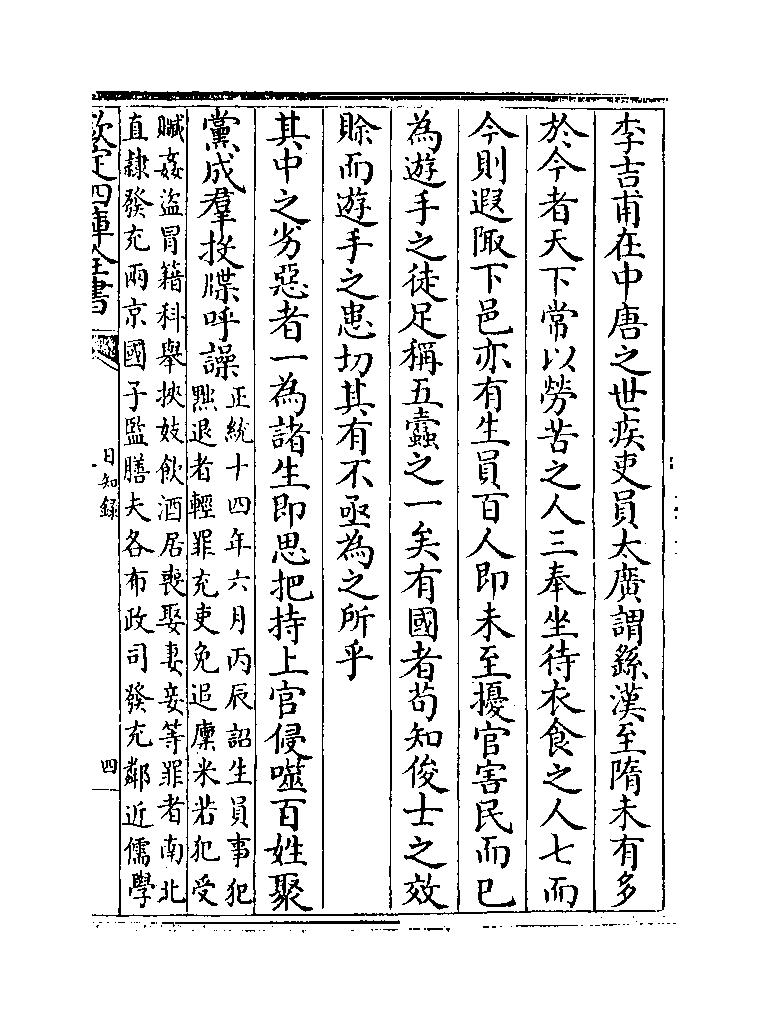 李吉甫在中唐之世疾吏員太廣謂繇漢至隋未有多
於今者天下常以勞苦之人三奉坐待衣食之人七而
今則遐陬下邑亦有生員百人即未至擾官害民而已
為遊手之徒足稱五蠹之一矣有國者苟知俊士之效
賖而遊手之患切其有不亟為之所乎
其中之劣惡者一為諸生即思把持上官侵噬百姓聚
黨成羣投牒呼譟
正統十四年六月丙辰詔生員事犯
黜退者輕罪充吏免追廩米若犯受
贓姦盜冒籍科舉挾妓飲酒居喪娶妻妾等罪者南北
直隸發充兩京國子監膳夫各布政司發充鄰近儒學
欽定四庫全書
日知錄
四